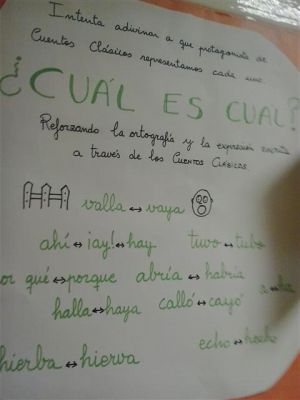 Intenta adivinar a que protagonista de
Cuentos Clásicos representamos cada uno
¿CUÁL ES CUAL?
Reforzando la ortografía y la expresión escrita
a través de los CUENTOS CLÁSICOS.
valla ↔ vaya
ahí ↔ ¡ay! ↔ hay tuvo ↔ tubo
or qué ↔ porque abría ↔ habría
a ↔ ha
halla ↔ haya calló ↔ cayó
echo ↔ hecho
hierba ↔ hierva